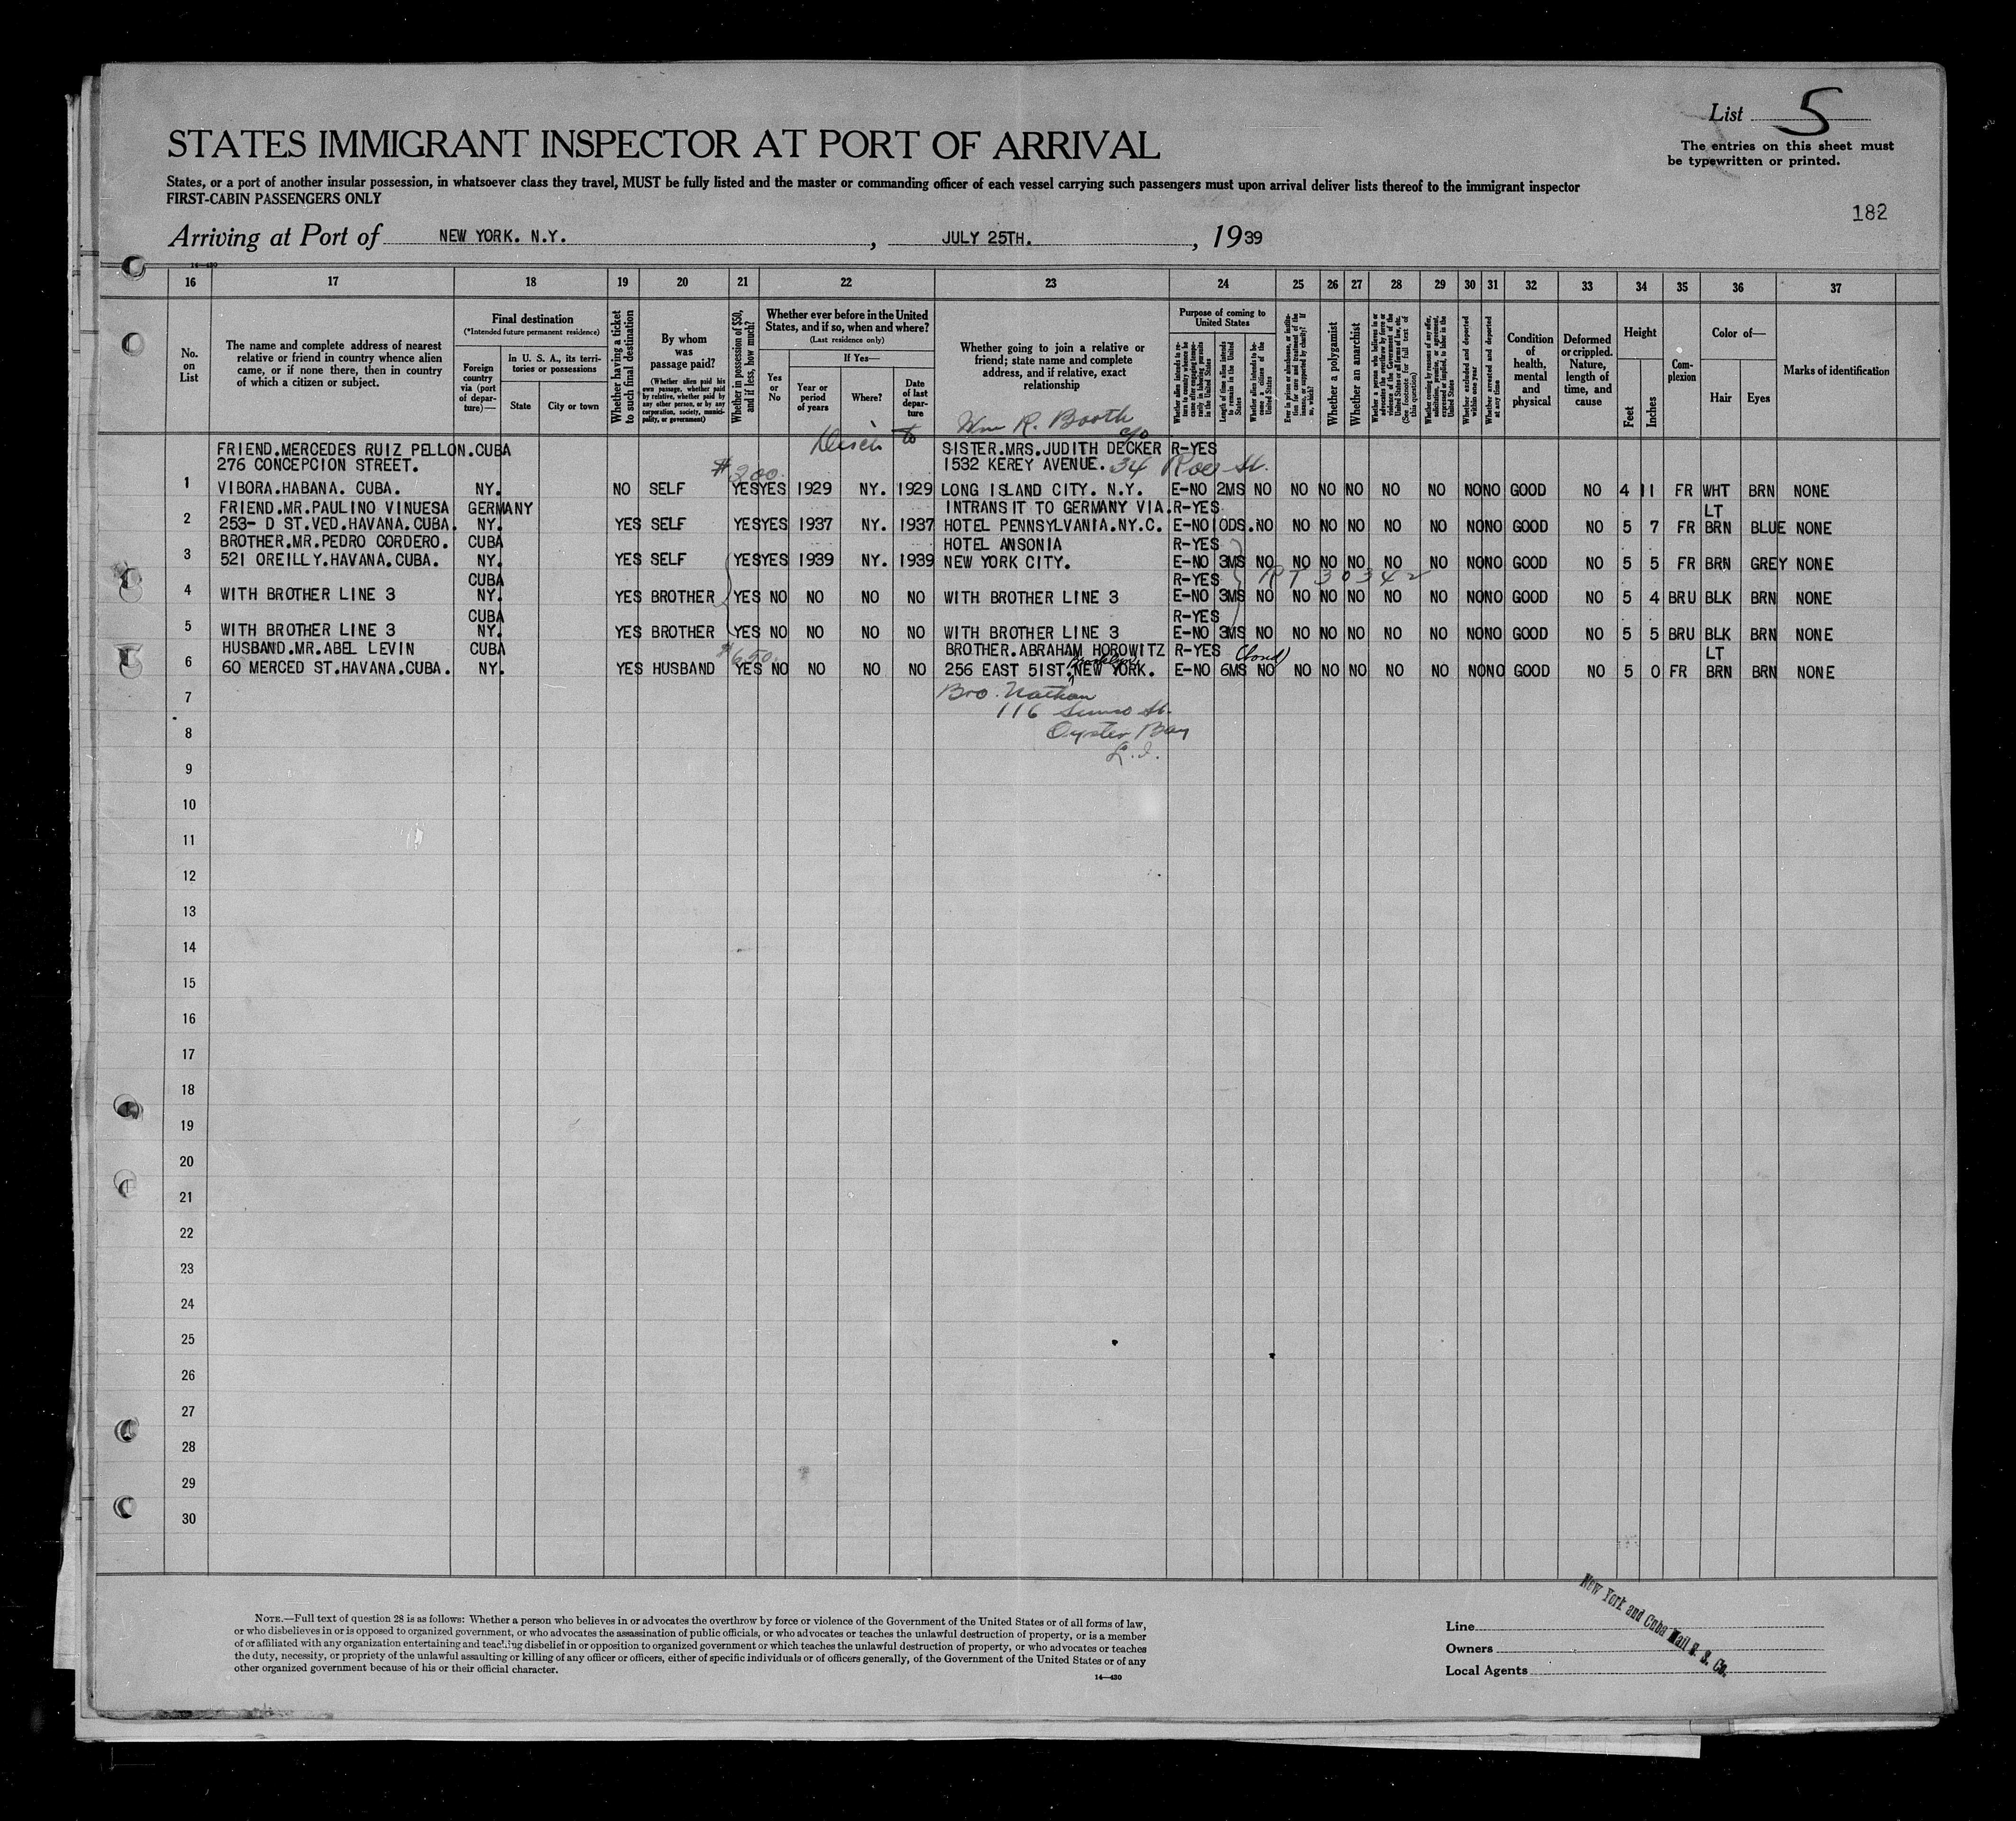 List 5
The entries on this sheet must
be typewritten or printed.
STATES IMMIGRANT INSPECTOR AT PORT OF ARRIVAL
States, or a port of another insular possession, in whatsoever class they travel, MUST be fully listed and the master or commanding officer of each vessel carrying such passengers must upon arrival deliver lists thereof to the immigrant inspector
FIRST-CABIN PASSENGERS ONLY
182
Arriving at Port of NEW YORK. N.Y. , JULY 25TH. , 1939
14—430
16 17 18 19 20 21 22 23 24 25 26 27 28 29 30 31 32 33 34 35 36 37
No. on List
The name and complete address of nearest relative or friend in country whence alien came, or if none there, then in country of which a citizen or subject.
Final destination
(*Intended future permanent residence)
Foreign country via (port of departure)—
In U. S. A., its territories or possessions
State
City or town
Whether having a ticket to such final destination
By whom was passage paid?
(Whether alien paid his own passage, whether paid by relative, whether paid by any other person, or by any corporation, society, municipality, or government)
Whether in possession of $50, and if less, how much?
Whether ever before in the United States, and if so, when and where?
(Last residence only)
Yes or No
If Yes—
Year or period of years
Where?
Date of last departure
Whether going to join a relative or friend; state name and complete address, and if relative, exact relationship
Purpose of coming to United States
Whether alien intends to return to country whence he came after engaging temporarily in laboring pursuits in the United States
Length of time alien intends to remain in the United States
Whether alien intends to become a citizen of the United States
Ever in prison or almshouse, or institution for care and treatment of the insane, or supported by charity? If so, which?
Whether a polygamist
Whether an anarchist
Whether a person who believes in or advocates the overthrow by force or violence of the Government of the United States or all forms of law, etc. (See footnote for full text of this question)
Whether coming by reasons of any offer, solicitation, promise, or agreement, expressed or implied, to labor in the United States
Whether excluded and deported within one year
Whether arrested and deported at any time
Condition of health, mental and physical
Deformed or crippled. Nature, length of time, and cause
Height
Feet
Inches
Complexion
Color of—
Hair
Eyes
Marks of identification
Wm R. Booth
c/o
to
FRIEND.MERCEDES RUIZ PELLON.CUBA SISTER.MRS.JUDITH DECKER R-YES
276 CONCEPCION STREET. $200. 1532 KEREY AVENUE. 34 Roe St.
1 VIBORA.HABANA. CUBA. NY. NO SELF YES YES 1929 NY. 1929 LONG ISLAND CITY. N.Y. E-NO 2MS NO NO NO NO NO NO NO NO GOOD NO 4 11 FR WHT BRN NONE
FRIEND.MR.PAULINO VINUESA GERMANY INTRANSIT TO GERMANY VIA. R-YES LT
2 253- D ST.VED.HAVANA.CUBA. NY. YES SELF YES YES 1937 NY. 1937 HOTEL PENNSYLVANIA.NY.C. E-NO 10DS. NO NO NO NO NO NO NO NO GOOD NO 5 7 FR BRN BLUE NONE
BROTHER.MR.PEDRO CORDERO. CUBA HOTEL ANSONIA R-YES
3 521 OREILLY.HAVANA.CUBA. NY. YES SELF YES YES 1939 NY. 1939 NEW YORK CITY. E-NO 3MS NO NO NO NO NO NO NO NO GOOD NO 5 5 FR BRN GREY NONE
CUBA R-YES RT 30342
4 WITH BROTHER LINE 3 NY. YES BROTHER YES NO NO NO NO WITH BROTHER LINE 3 E-NO 3MS NO NO NO NO NO NO NO NO GOOD NO 5 4 BRU BLK BRN NONE
CUBA R-YES
5 WITH BROTHER LINE 3 NY. YES BROTHER YES NO NO NO NO WITH BROTHER LINE 3 E-NO 3MS NO NO NO NO NO NO NO NO GOOD NO 5 5 BRU BLK BRN NONE
HUSBAND.MR.ABEL LEVIN CUBA $650. BROTHER.ABRAHAM HOROWITZ R-YES (bond) LT
6 60 MERCED ST.HAVANA.CUBA. NY. YES HUSBAND YES NO NO NO NO 256 EAST 51ST. Brooklyn NEW YORK. E-NO 6MS NO NO NO NO NO NO NO NO GOOD NO 5 0 FR BRN BRN NONE
7 Bro. Nathan
116 St.
8 Oyster Bay
L.I.
9
10
11
12
13
14
15
16
17
18
19
20
21
22
23
24
25
26
27
28
29
30
NOTE.—Full text of question 28 is as follows: Whether a person who believes in or advocates the overthrow by force or violence of the Government of the United States or of all forms of law,
or who disbelieves in or is opposed to organized government, or who advocates the assassination of public officials, or who advocates or teaches the unlawful destruction of property, or is a member
of or affiliated with any organization entertaining and teaching disbelief in or opposition to organized government or which teaches the unlawful destruction of property, or who advocates or teaches
the duty, necessity, or propriety of the unlawful assaulting or killing of any officer or officers, either of specific individuals or of officers generally, of the Government of the United States or of any
other organized government because of his or their official character.
14—430
Line
Owners
Local Agents
New York and Cuba Mail S. S. Co.